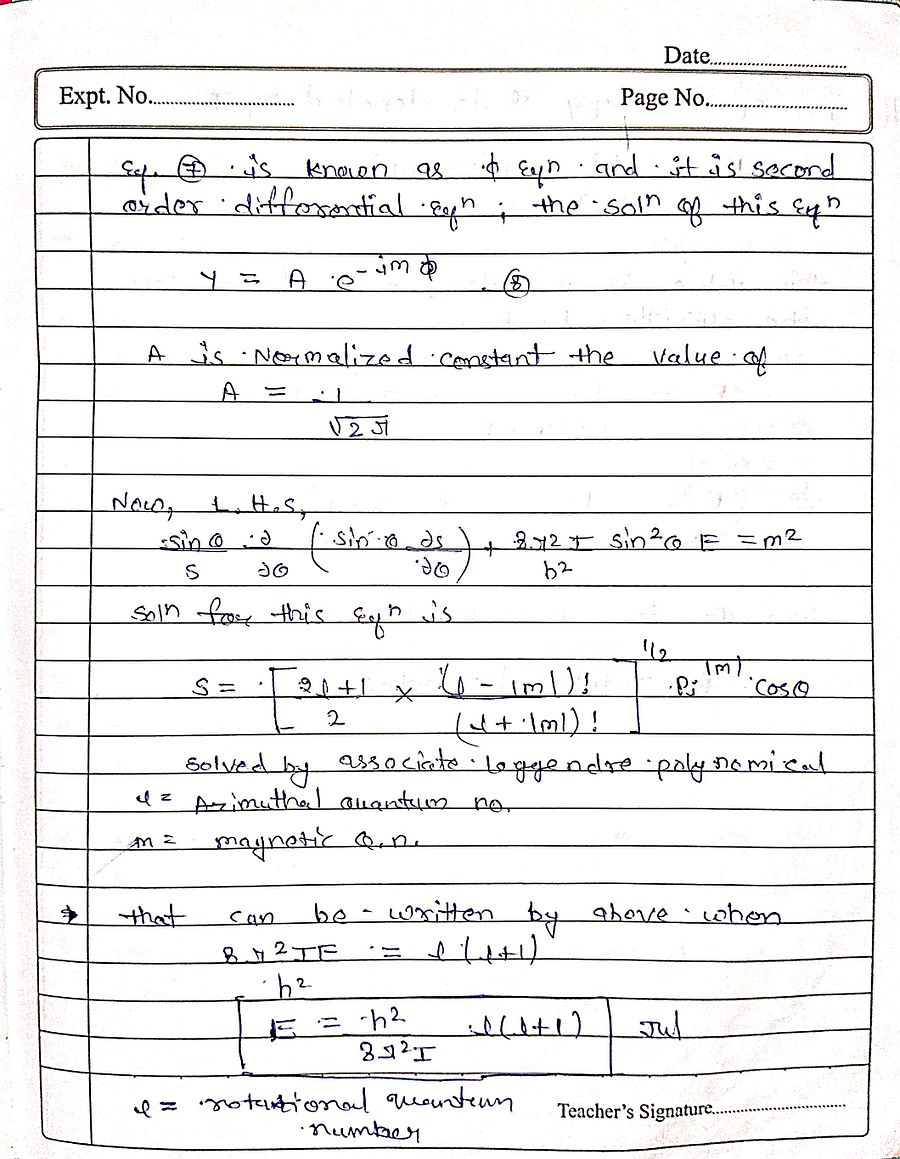 Date
Expt. No.
Page No.
Eq. ⑦ is known as ϕ Eqn and it is second
order differential Eqn ; the soln of this Eqn
Y = A e^{-imϕ} ⑧
A is Normalized constant the value of
A = 1
√2π
Now, L.H.S,
sinθ/S ∂/∂θ (sinθ ∂s/∂θ) + 8π²I/h² sin²θ E = m²
soln for this Eqn is
S = [2l+1/2 × (l - |m|)!/(l + |m|)!]^{1/2} Pi^{|m|} cosθ
solved by associate Leggendre polynomical
l = Azimuthal quantum no.
m = magnetic Q.n.
→ that can be written by above when
8π²IE = l(l+1)
h²
E = h²/8π²I l(l+1) Jul
l = rotational quantum
number
Teacher's Signature